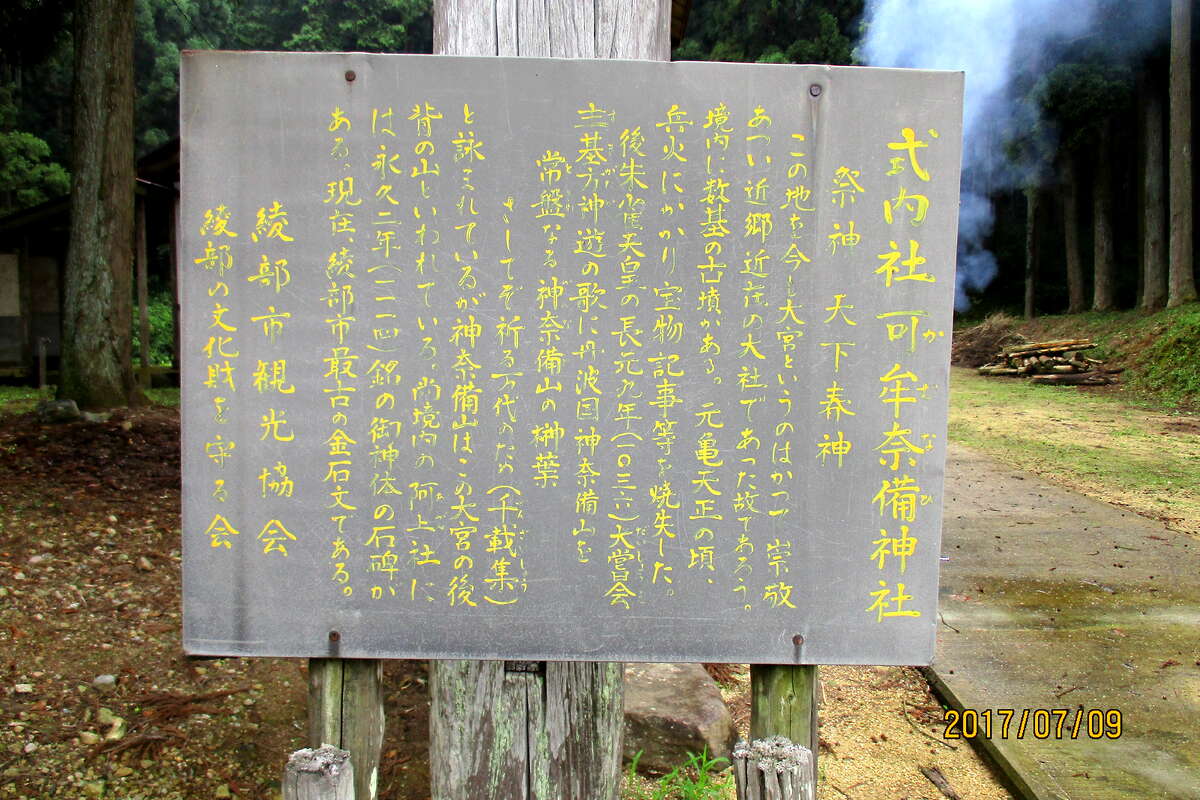 式内社 可牟奈備神社
かむなひ
祭神 天下春神
この地を今も大宮というのはかつて崇敬
あつい近郷近在の大社であった故であろう。
境内に数基の古墳がある。元亀天正の頃、
兵火にかかり宝物記事等を焼失した。
後朱雀天皇の長元九年(一〇三六)大嘗会
主基方神遊の歌に丹波国神奈備山を
常盤なる神奈備山の榊葉
さしてぞ祈る万代のため(千載集)
と詠まれているが神奈備山はこの大宮の後
背の山といわれている。尚境内の阿上社に
は永久二年(一一一四)銘の御神体の石碑が
ある。現在、綾部市最古の金石文である。
綾部市観光協会
綾部の文化財を守る会
2017/07/09